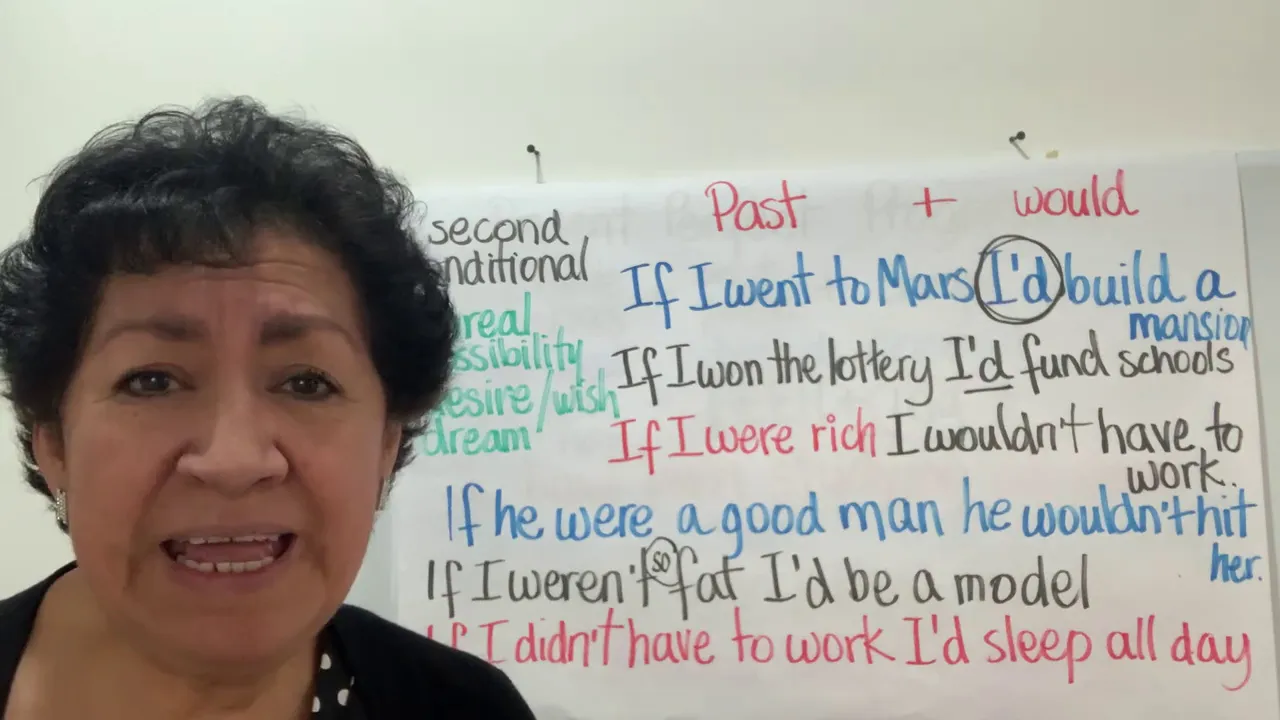 second
Past + would
nditional
If I went to Mars I'd build a
mansion
real
ssibility
If I won the lottery I'd fund schools
esire/wish
dream
If I were rich I wouldn't have to
work.
If he were a good man he wouldn't hit
her.
If I weren't so fat I'd be a model
If I didn't have to work I'd sleep all day